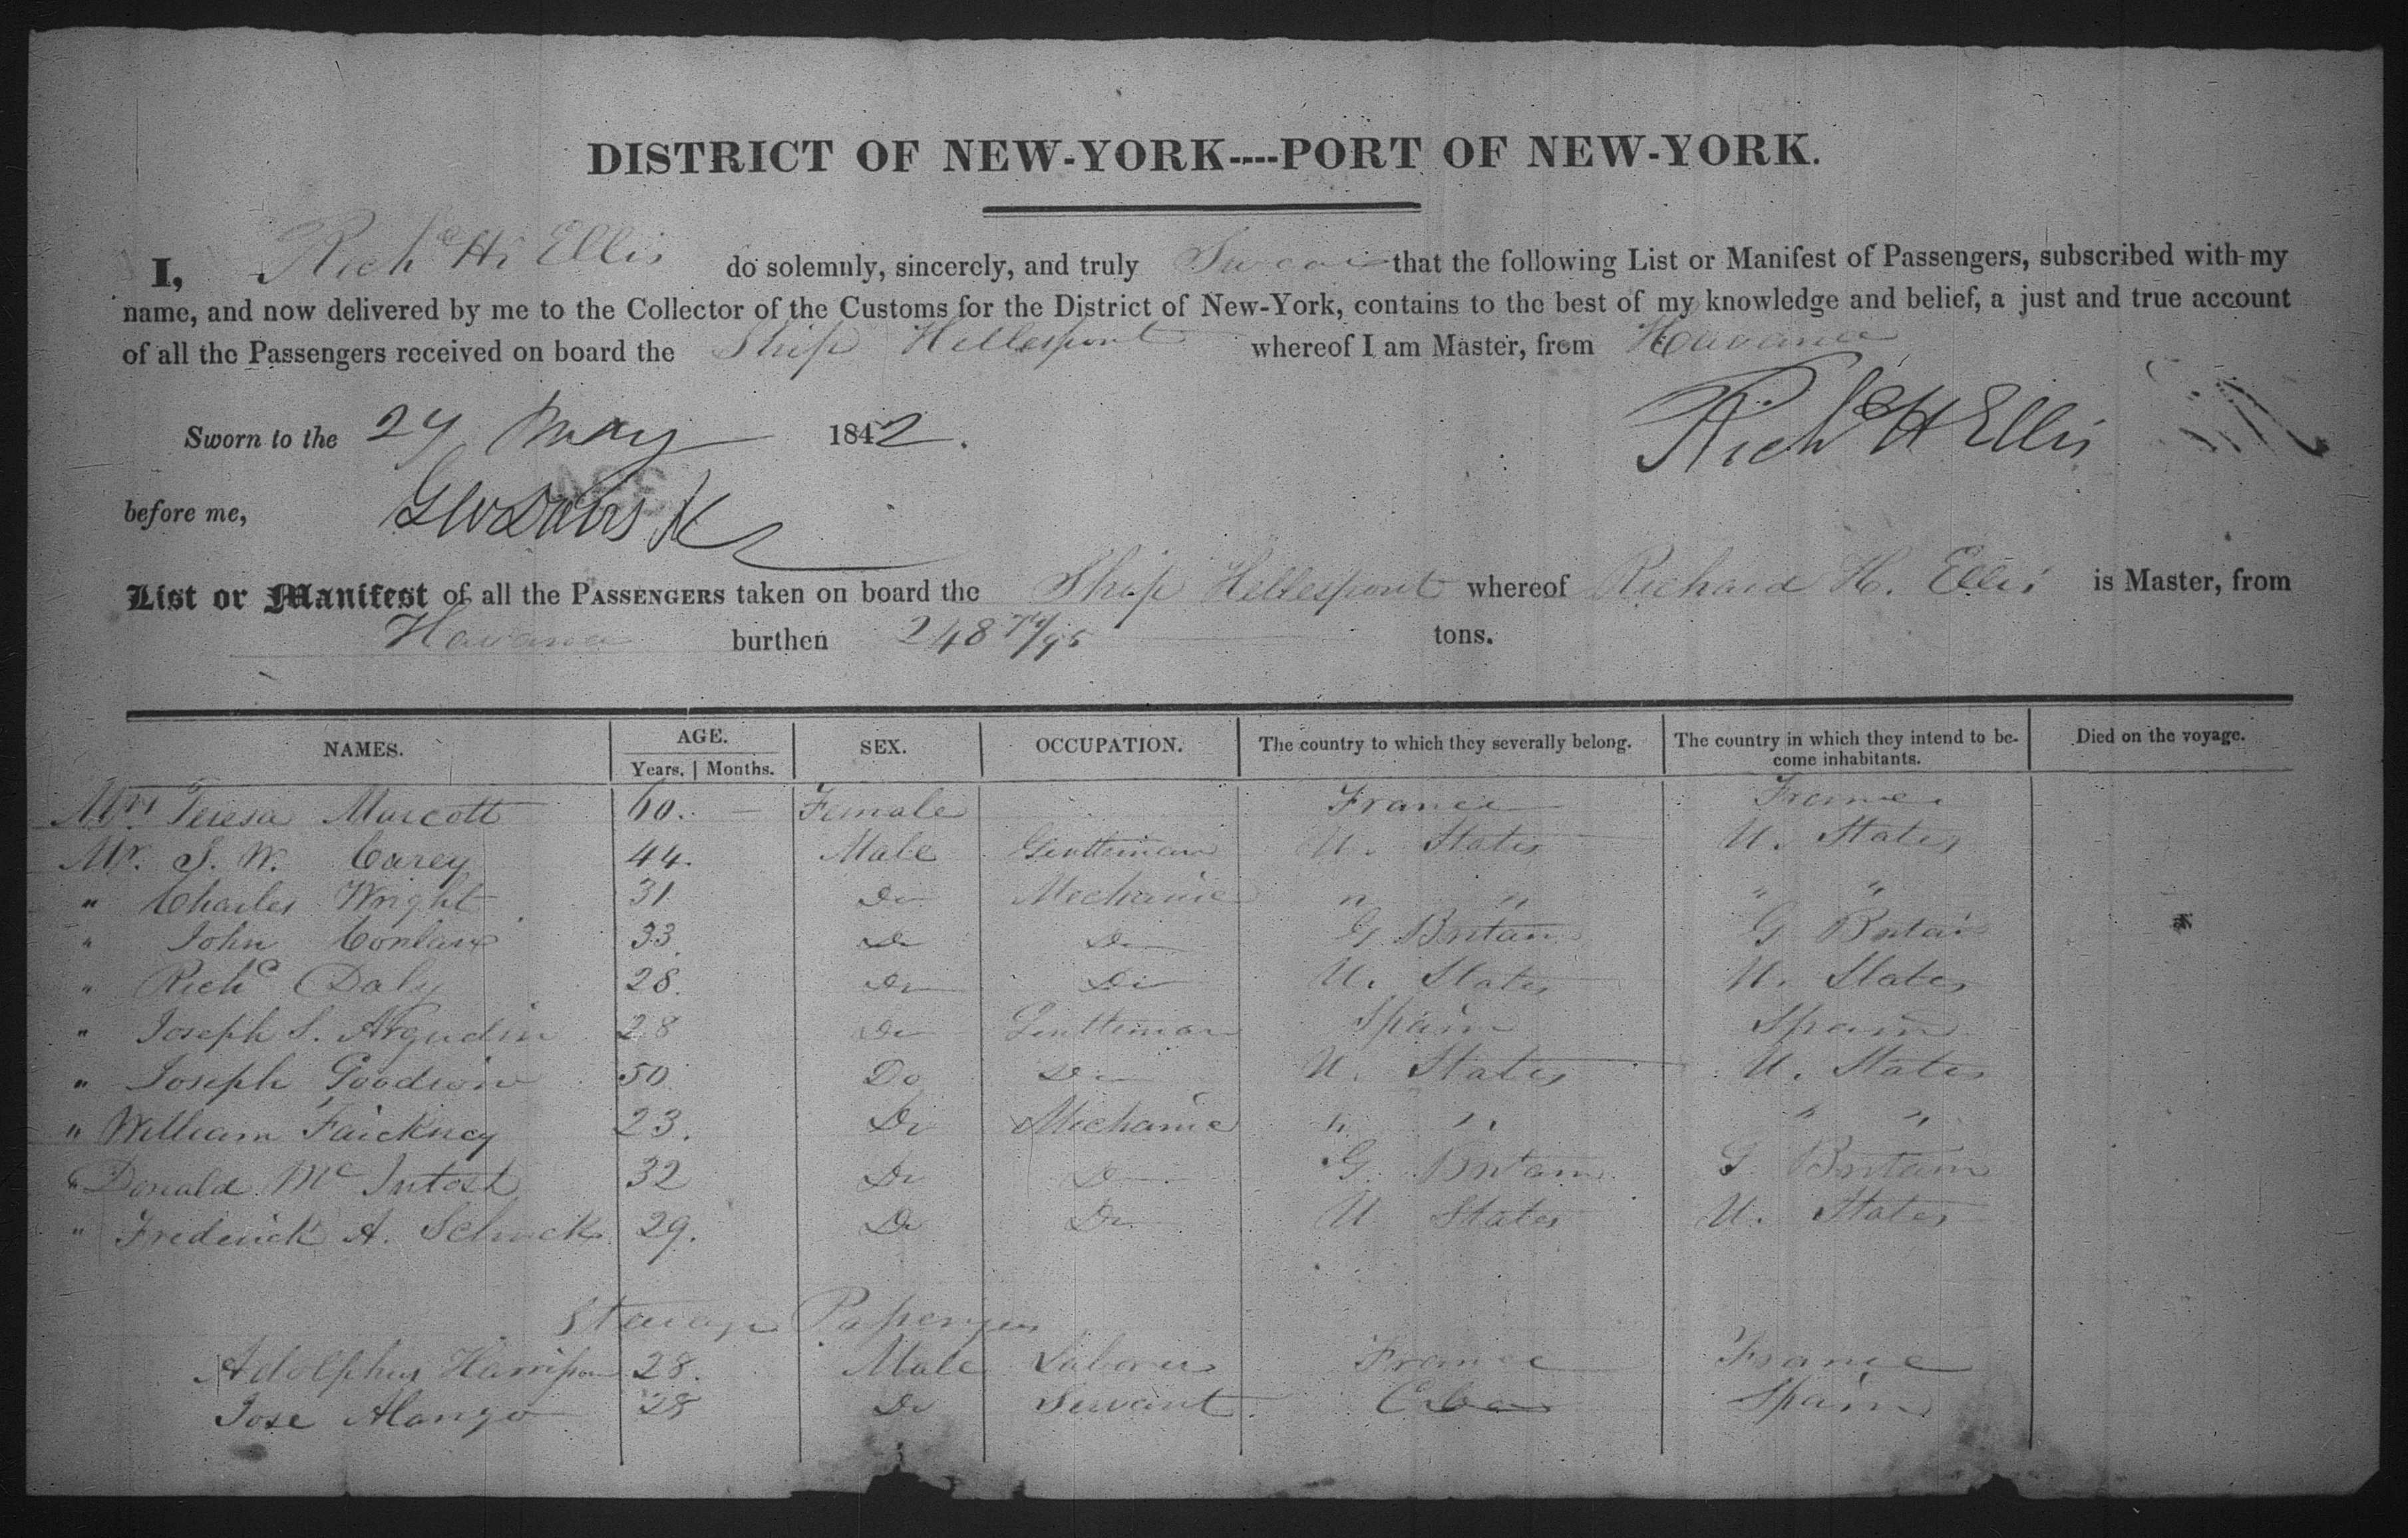 DISTRICT OF NEW-YORK----PORT OF NEW-YORK.
I, Richd H. Ellis do solemnly, sincerely, and truly Swear that the following List or Manifest of Passengers, subscribed with my
name, and now delivered by me to the Collector of the Customs for the District of New-York, contains to the best of my knowledge and belief, a just and true account
of all the Passengers received on board the Ship Hellespont whereof I am Master, from Havana
Richd H Ellis
Sworn to the 27 May 1842.
before me,
List or Manifest of all the PASSENGERS taken on board the Ship Hellespont whereof Richard H. Ellis is Master, from
Havana burthen 248 74/95 tons.
NAMES. AGE. SEX. OCCUPATION. The country to which they severally belong. The country in which they intend to be- Died on the voyage.
Years. | Months. come inhabitants.
Mrs. Teresa Marcott 60. — Female France France
Mr. S. W. Carey 44. Male Gentleman U. States U. States
" Charles Wright 31 Do Mechanic " " " "
" John Conlan 33. Do Do G. Britain G Britain
" Richd Daly 28. Do Do U. States U. States
" Joseph S. Argudin 28 Do Gentleman Spain Spain
" Joseph Goodwin 50. Do Do U. States U. States
" William Faickney 23. Do Mechanic " " " "
" Donald Mc Intosh 32 Do Do G. Britain G. Britain
" Frederick A. Schuck 29. Do Do U States U. States
Steerage Passengers
Adolphus Harrison 28. Male Laborer France France
Jose Alonzo 28 Do Servant. Cuba Spain